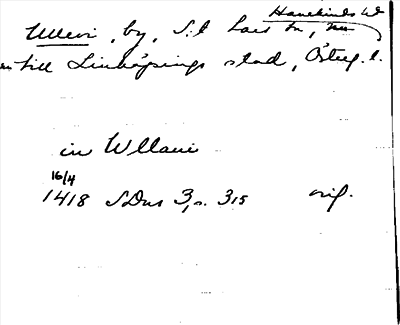 Hanekinds hd
Ullevi, by, S:t Lars sn,
till Linköpings stad, Östug. l.
in Wllaui
16/4
1418 SDns 3, s. 315 orig.